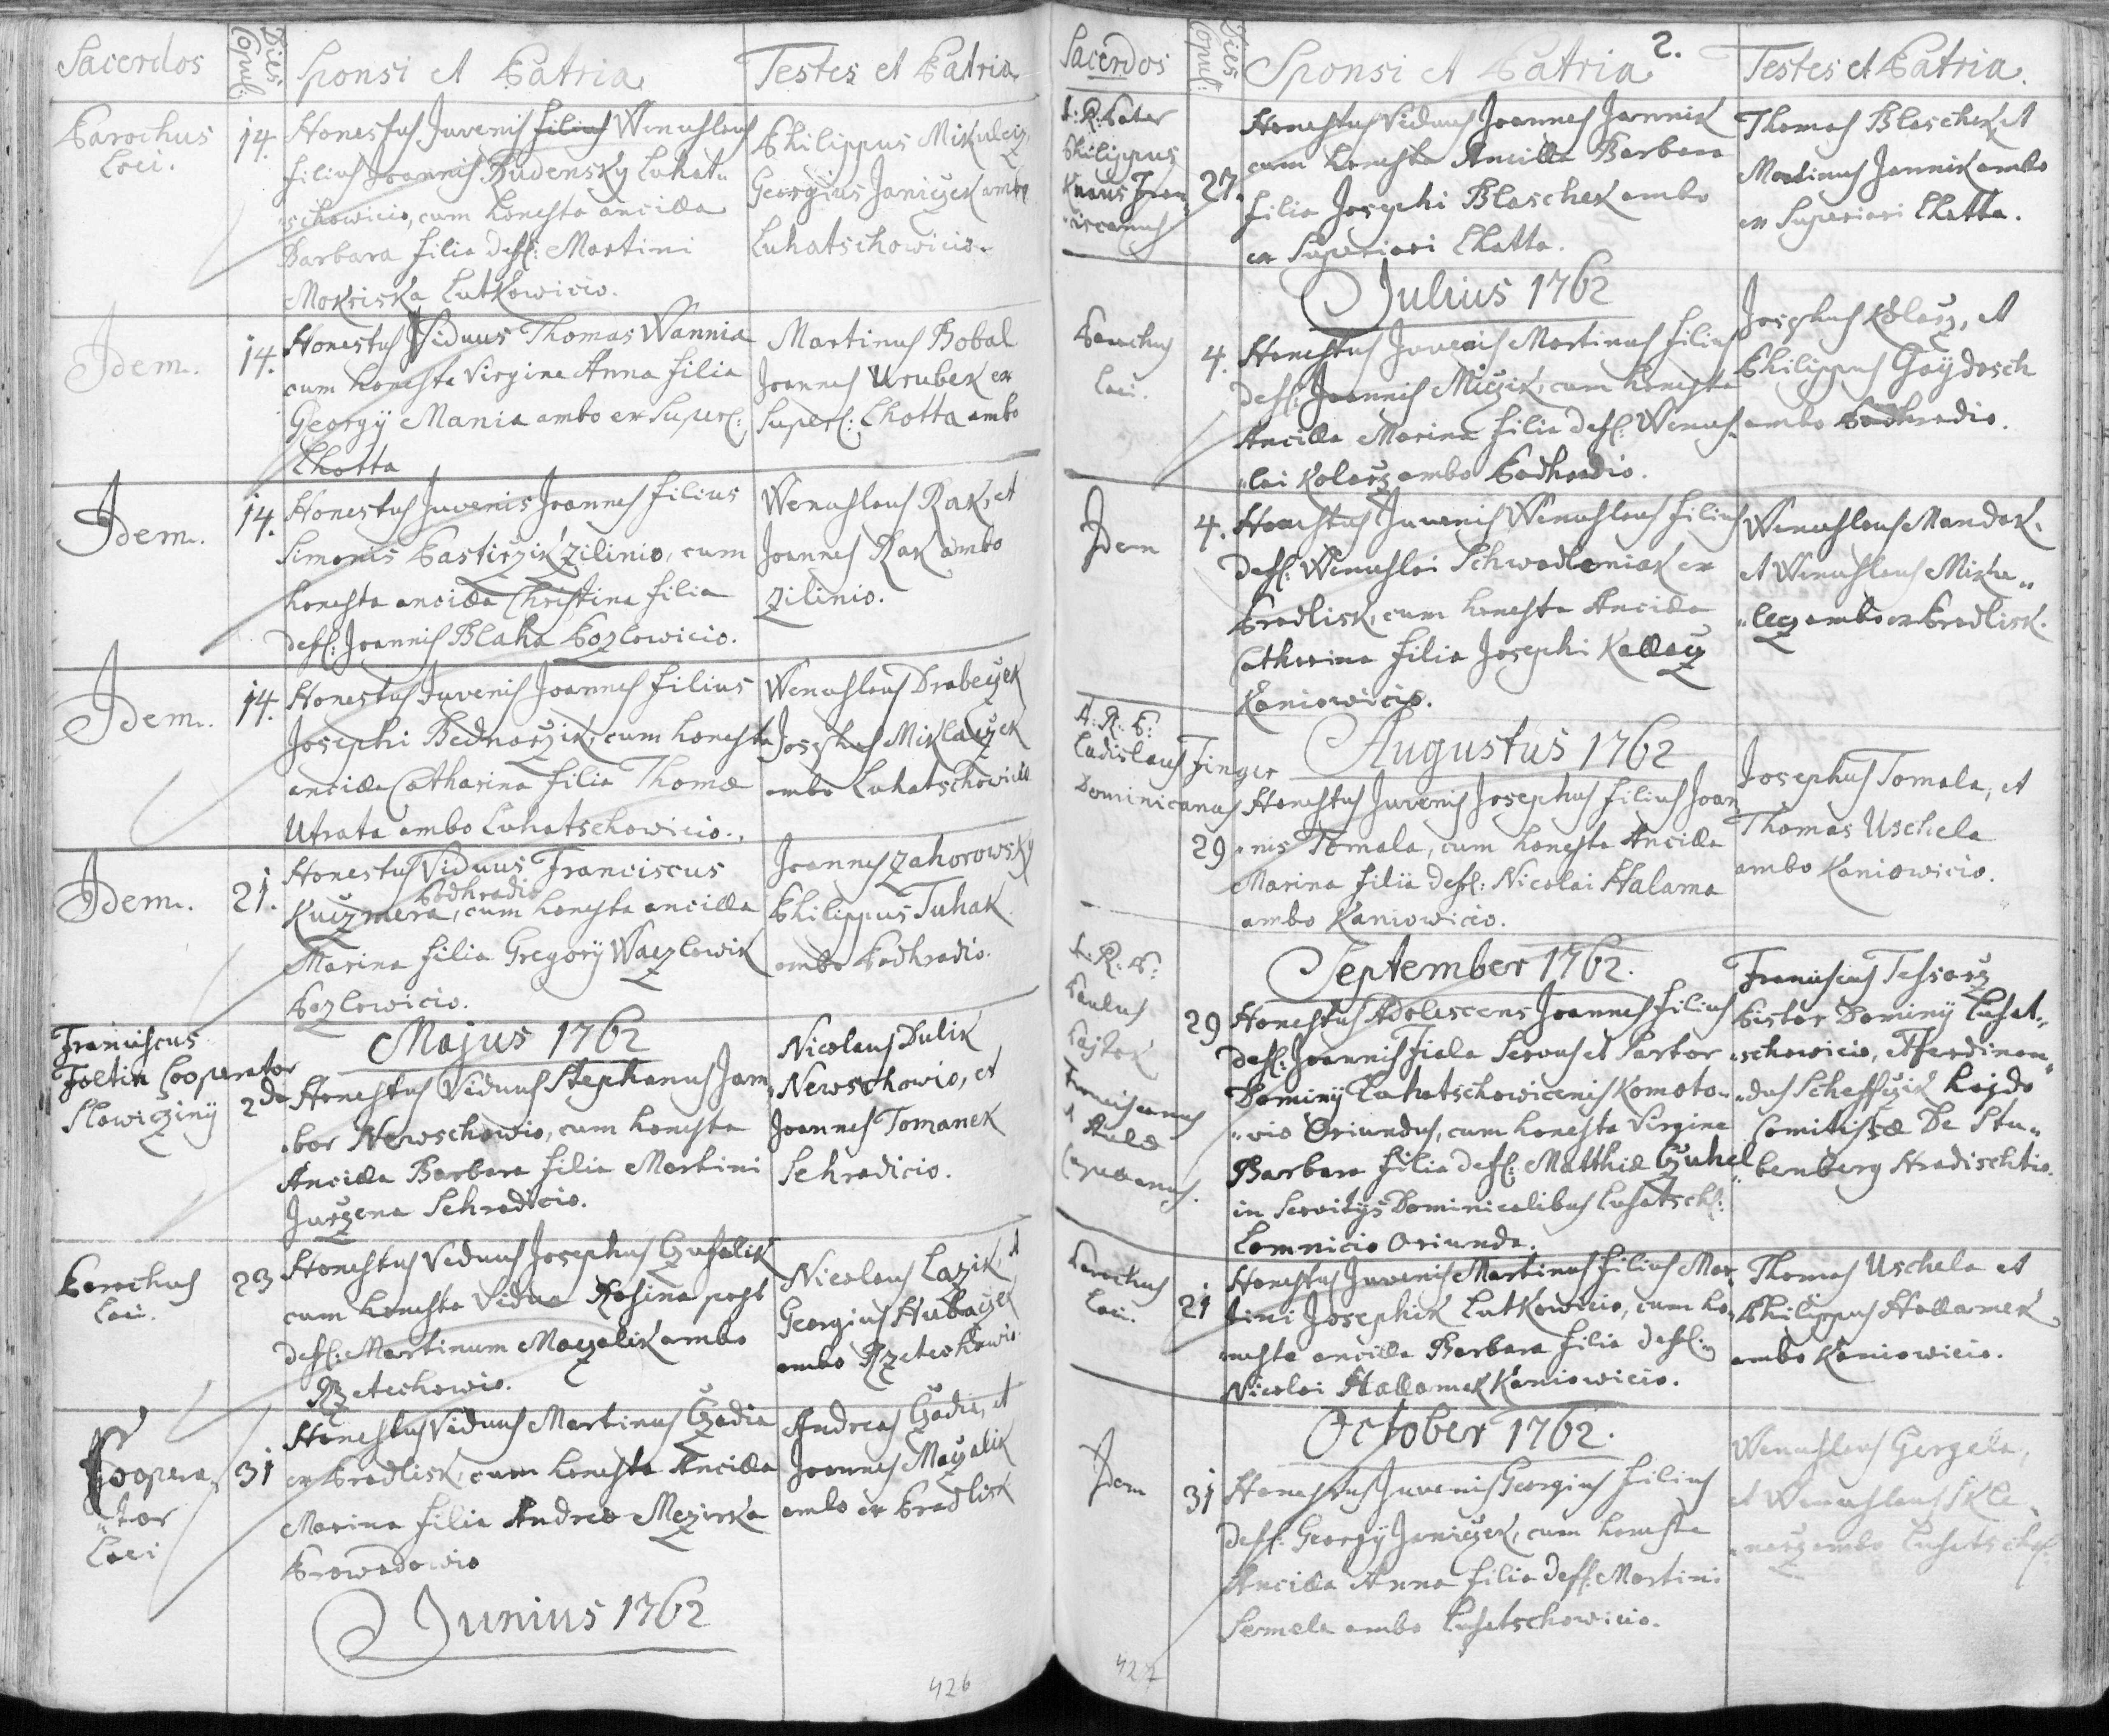 Sacerdos
Dies Copul:
Sponsi et Patria
Testes et Patria
Parochus
Loci.
14.
Honestus Juvenis filius Wenceslaus
filius Joannis Rudensky Luhat„
„schowicio, cum honesta ancilla
Barbara filia def: Martini
Mokriska Lutkowicio.
Philippus Mikulciz
Georgius Janiczek ambo
Luhatschowicio.
Idem.
14.
Honestus Viduus Thomas Wannia
cum honesta Virgine Anna filia
Georgÿ Mania ambo ex Super:
Lhotta
Martinus Bobal
Joannes Urubek ex
Super: Lhotta ambo
Idem.
14.
Honestus Juvenis Joannes filius
Simonis Pastirzik Zilinio, cum
honesta ancilla Christina filia
def: Joannis Blaha Pozlowicio.
Wenceslaus Rak, et
Joannes Rak ambo
Zilinio.
Idem.
14.
Honestus Juvenis Joannes filius
Josephi Bednarzik, cum honesta
ancilla Catharina filia Thomæ
Utrata ambo Luhatschowicio.
Wenceslaus Drabeczek
Josephus Miklaczek
ambo Luhatschowicio
Idem.
21.
Honestus Viduus Franciscus
Podhradio
Kuczmera, cum honesta ancilla
Marina filia Gregorÿ Waczlowik
Pozlowicio.
Joannes Zahorowsky
Philippus Tuhak
ambo Podhradio.
Majus 1762
Franciscus
Foltin Cooperator
Slawiczinÿ
2da
Honestus Viduus Stephanus Jam
„bor Newschowio, cum honesta
Ancilla Barbara filia Martini
Jurzena Sehradicio.
Nicolaus Dulik
Newschowio, et
Joannes Tomanek
Sehradicio.
Parochus
Loci.
23
Honestus Viduus Josephus Czuhalik
cum honesta Vidua Rosina post
def: Martinum Maczalik ambo
Rzetechowio.
Nicolaus Lazik, et
Georgius Hubaczek
ambo Rzetechowio
Coopera„
„tor
Loci
31
Honestus Viduus Martinus Czadia
ex Pradlisk, cum honesta Ancilla
Marina filia Andreæ Mezirka
Prowodowio
Andreas Czadia, et
Joannes Maczalik
ambo ex Pradlisk
Junius 1762
426
Sacerdos
Dies Copul:
Sponsi et Patria
2.
Testes et Patria.
A: R: Pater
Philippus
Knaus Fran„
„ciscanus
27.
Honestus Viduus Joannes Jannik
cum honesta Ancilla Barbara
filia Josephi Blaschek ambo
ex Superiori Lhatta.
Thomas Blaschek, et
Martinus Jannik ambo
ex Superiori Lhatta.
Julius 1762
Parochus
Loci.
4.
Honestus Juvenis Martinus filius
def: Joannis Miczik, cum honesta
Ancilla Marina filia def: Wences„
„lai Kolarz ambo Podhradio.
Josephus Kolarz, et
Philippus Gaÿdosch
ambo Podhradio.
Idem
4.
Honestus Juvenis Wenceslaus filius
def: Wenceslai Schwadleniak ex
Pradlisk, cum honesta Ancilla
Catharina filia Josephi Kallacz
Kaniowicio.
Wenceslaus Mandak,
et Wenceslaus Miku„
„lecz ambo ex Pradlisk.
Augustus 1762
A: R: P:
Ladislaus Finger
Dominicanus
29
Honestus Juvenis Josephus filius Joan
„nis Tomala, cum honesta Ancilla
Marina filia def: Nicolai Halama
ambo Kaniowicio.
Josephus Tomala, et
Thomas Uschela
ambo Kaniowicio.
September 1762.
A: R: P:
Paulus
Franciscanus
Aulæ
Capellanus.
29
Honestus Adolescens Joannes filius
def: Joannis Fiala Servus et Partor
Dominÿ Luhatschowicensis Komoto„
„vio Oriundus, cum honesta Virgine
Barbara filia def: Matthiæ Czuhel
in Servitÿs Dominicalibus Luhatsch:
Lomnicio Oriunda.
Franciscus Tessarz
Pistor Dominÿ Luhat„
„schowicio, et Ferdinan„
„dus Scheffczik
Comitissæ De Stu„
„benberg Hradischtio.
Parochus
Loci.
21
Honestus Juvenis Martinus filius Mar„
tini Josephik Lutkowicio, cum ho„
„nesta ancilla Barbara filia def:
Nicolai Hallamek Kaniowicio.
Thomas Uschela et
Philippus Hallamek
ambo Kaniowicio.
October 1762.
Idem
31
Honestus Juvenis Georgius filius
def: Georgÿ Janiczek, cum honesta
Ancilla Anna filia def: Martini
Semela ambo Luhatschowicio.
Wenceslaus Gergela,
et Wenceslaus Skle„
„narz ambo Luhatsch:
427